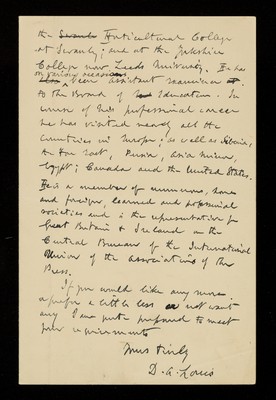 the Horticultural College
at Swanley; and at the Yorkshire
College now Leeds University. He has
on various occasions
been assistant examiner
to the Board of Education. In
course of his professional career
he has visited nearly all the
Countries in Europe; as well as Siberia,
the Far East, Persia, Asia Minor,
Egypt; Canada and the United States.
He is a member of numerous, home
and foreign, learned and professional
societies and is the representative for
Great Britain & Ireland on the
Central Bureau of the International
Union of the Associations of the
Press.
If you would like any more
or prefer a little less or not want
any I am quite prepared to meet
your requirements
Yours truly
D. A. Louis